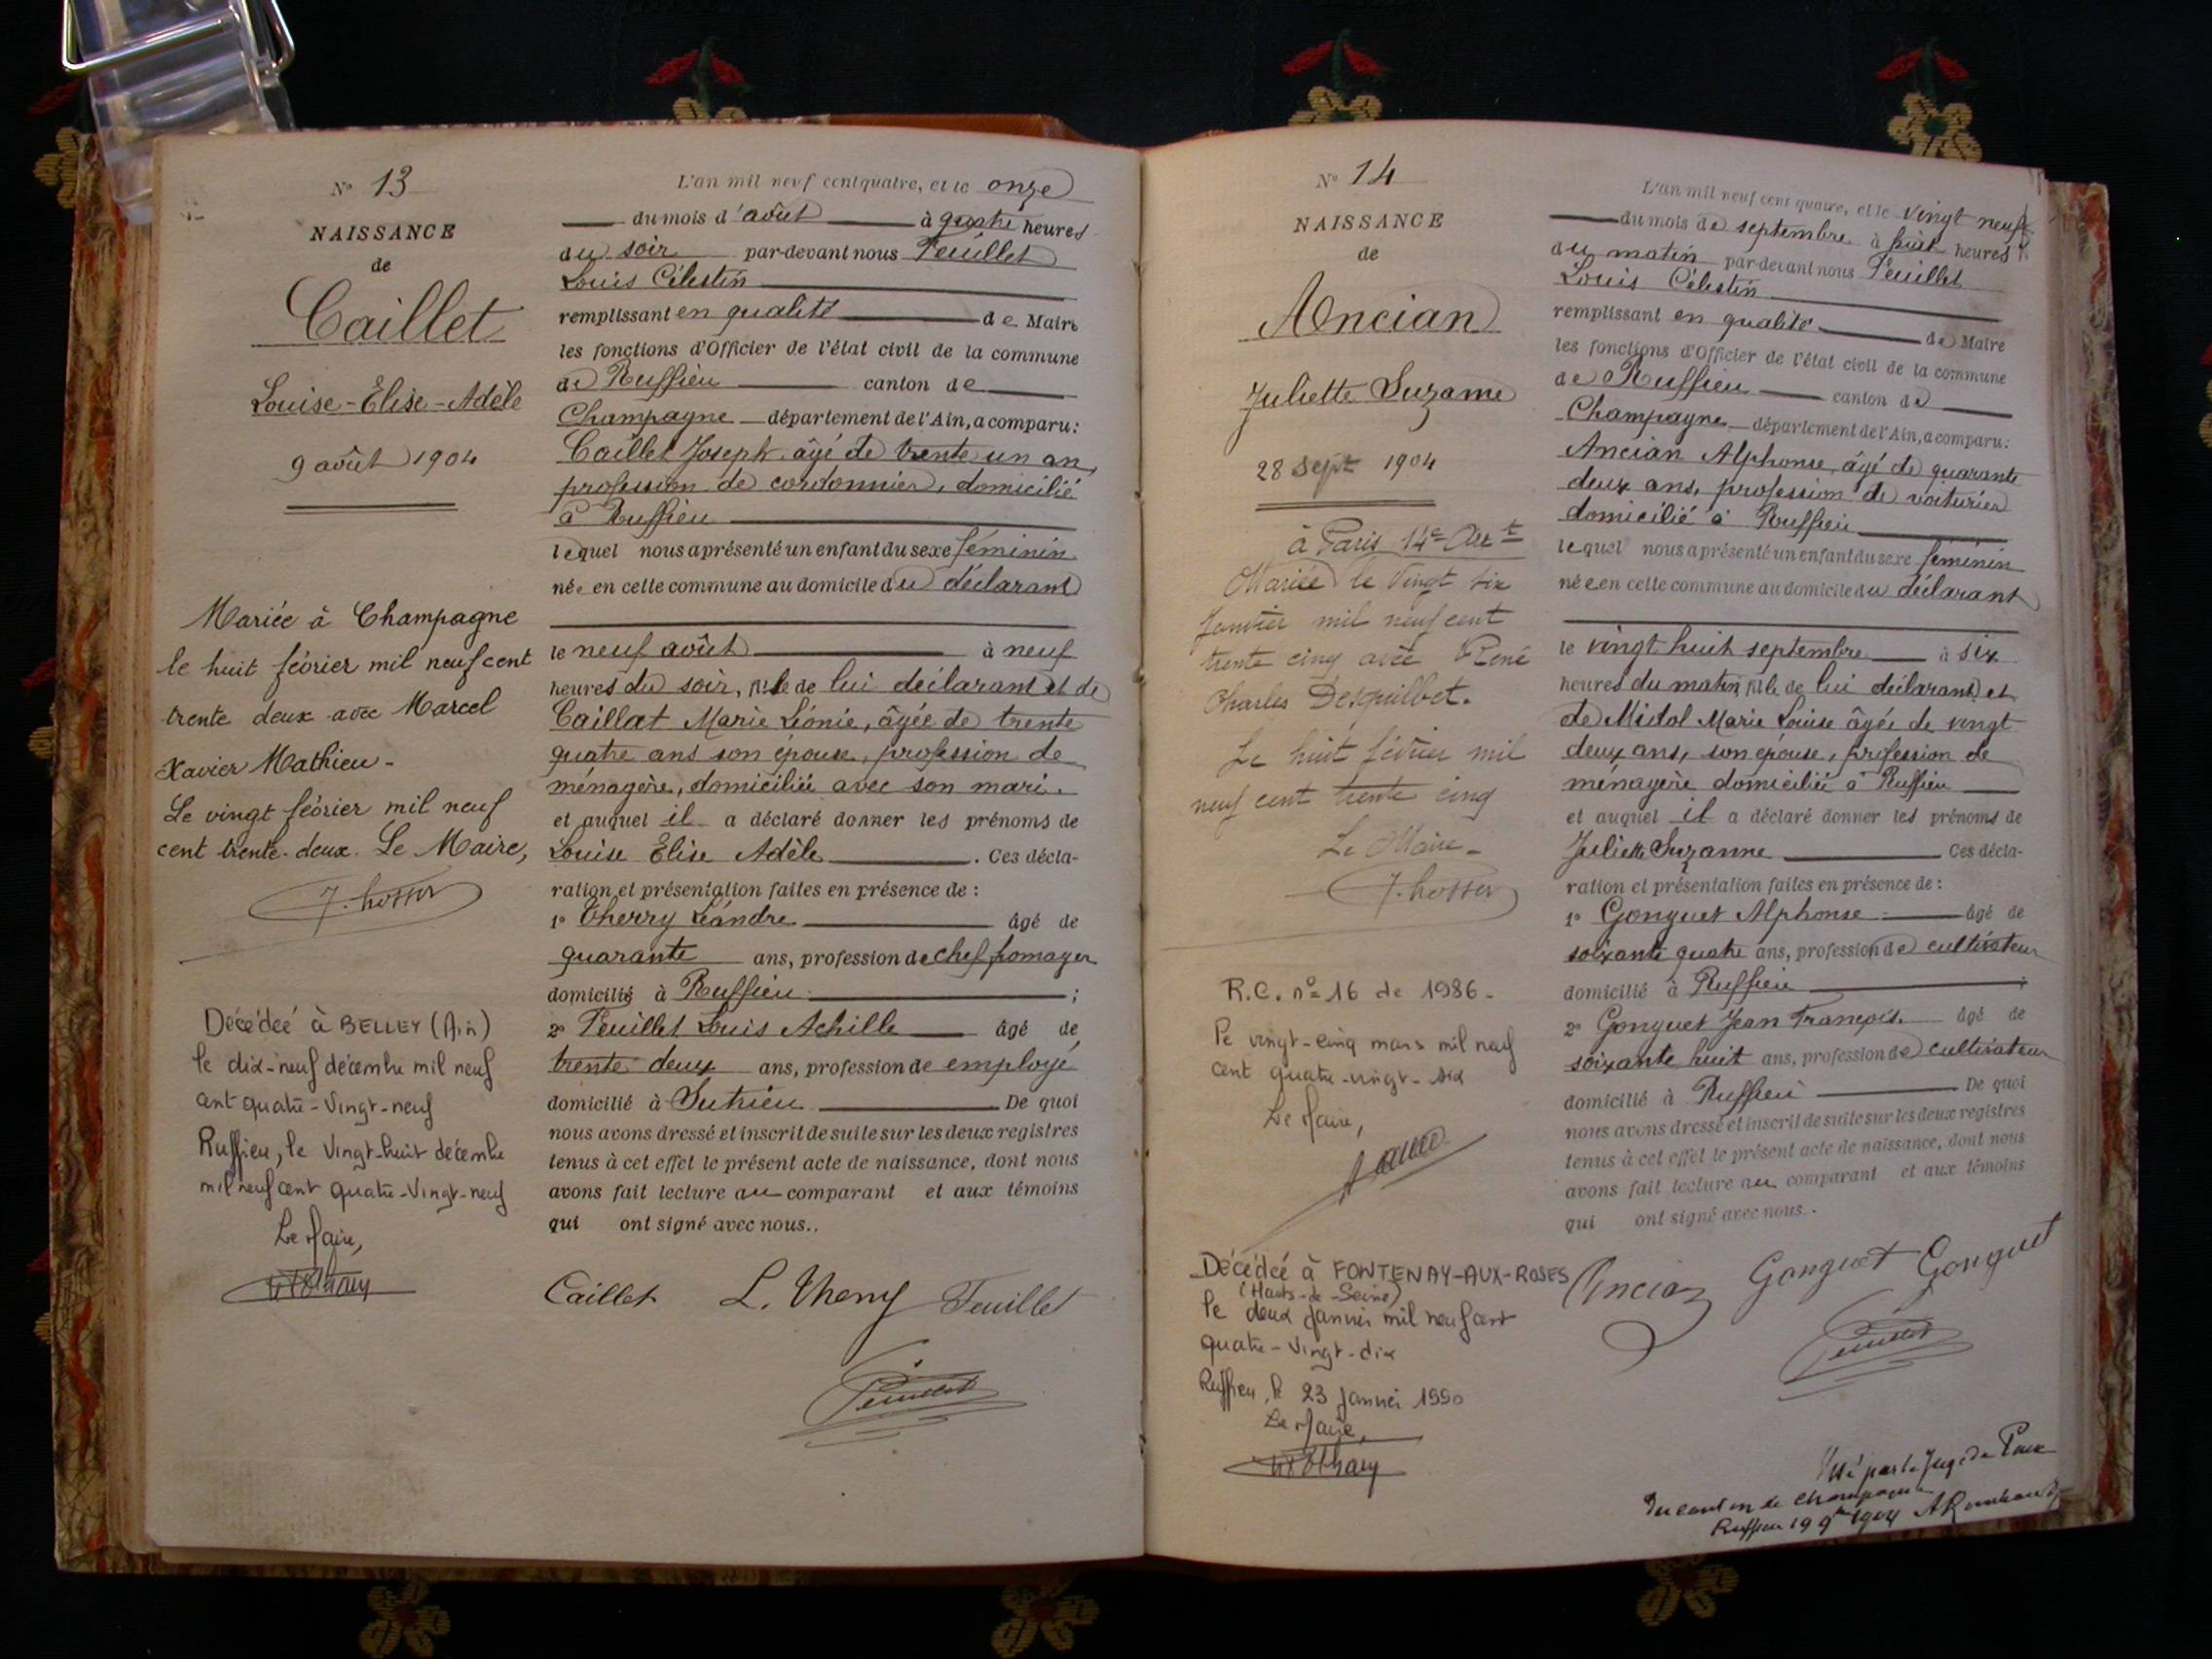 N° 13
NAISSANCE
de
Caillet
Louise-Elise-Adèle
9 août 1904
Mariée à Champagne
le huit février mil neuf cent
trente deux avec Marcel
Xavier Mathieu -
Le vingt février mil neuf
cent trente-deux. Le Maire,
Décédée à BELLEY (Ain)
le dix-neuf décembre mil neuf
cent quatre-vingt-neuf
Ruffieu, le vingt-huit décembre
mil neuf cent quatre-vingt-neuf
Le Maire,
L'an mil neuf cent quatre, et le onze
du mois d'août à quatre heures
du soir par-devant nous Feuillet
Louis Célestin
remplissant en qualité de Maire
les fonctions d'Officier de l'état civil de la commune
de Ruffieu canton de
Champagne département de l'Ain, a comparu:
Caillet Joseph âgé de trente un an,
profession de cordonnier, domicilié
à Ruffieu
lequel nous a présenté un enfant du sexe féminin
née en cette commune au domicile du déclarant
le neuf août à neuf
heures du soir, fille de lui déclarant et de
Caillat Marie Léonie, âgée de trente
quatre ans son épouse, profession de
ménagère, domiciliée avec son mari.
et auquel il a déclaré donner les prénoms de
Louise Elise Adèle. Ces décla-
ration et présentation faites en présence de :
1° Therry Léandre âgé de
quarante ans, profession de chef fromager
domicilié à Ruffieu ;
2° Feuillet Louis Achille âgé de
trente deux ans, profession de employé
domicilié à Sutrieu De quoi
nous avons dressé et inscrit de suite sur les deux registres
tenus à cet effet le présent acte de naissance, dont nous
avons fait lecture au comparant et aux témoins
qui ont signé avec nous..
Caillet L. Therry Feuillet
Feuillet
N° 14
NAISSANCE
de
Ancian
Juliette Suzanne
28 sept 1904
à Paris 14e Arrt
Mariée le vingt six
Janvier mil neuf cent
trente cinq avec René
Charles Desquilbet.
Le huit février mil
neuf cent trente cinq
Le Maire -
R.C. n° 16 de 1986 -
Le vingt-cinq mars mil neuf
cent quatre-vingt-six
Le Maire,
Décédée à FONTENAY-AUX-ROSES
(Hauts-de-Seine)
le deux janvier mil neuf cent
quatre-vingt-dix
Ruffieu, le 23 janvier 1990
Le Maire,
L'an mil neuf cent quatre, et le vingt neuf
du mois de septembre à huit heures
du matin par-devant nous Feuillet
Louis Célestin
remplissant en qualité de Maire
les fonctions d'Officier de l'état civil de la commune
de Ruffieu canton de
Champagne département de l'Ain, a comparu:
Ancian Alphonse, âgé de quarante
deux ans, profession de voiturier
domicilié à Ruffieu
lequel nous a présenté un enfant du sexe féminin
née en cette commune au domicile du déclarant
le vingt huit septembre à six
heures du matin fille de lui déclarant et
de Midol Marie Louise âgée de vingt
deux ans, son épouse, profession de
ménagère domiciliée à Ruffieu
et auquel il a déclaré donner les prénoms de
Juliette Suzanne Ces décla-
ration et présentation faites en présence de :
1° Gonguet Alphonse âgé de
soixante quatre ans, profession de cultivateur
domicilié à Ruffieu ;
2° Gonguet Jean François âgé de
soixante huit ans, profession de cultivateur
domicilié à Ruffieu De quoi
nous avons dressé et inscrit de suite sur les deux registres
tenus à cet effet le présent acte de naissance, dont nous
avons fait lecture au comparant et aux témoins
qui ont signé avec nous..
Ancian Gonguet Gonguet
Feuillet
Visé par le Juge de Paix
du canton de Champagne
Ruffieu 19 9bre 1904